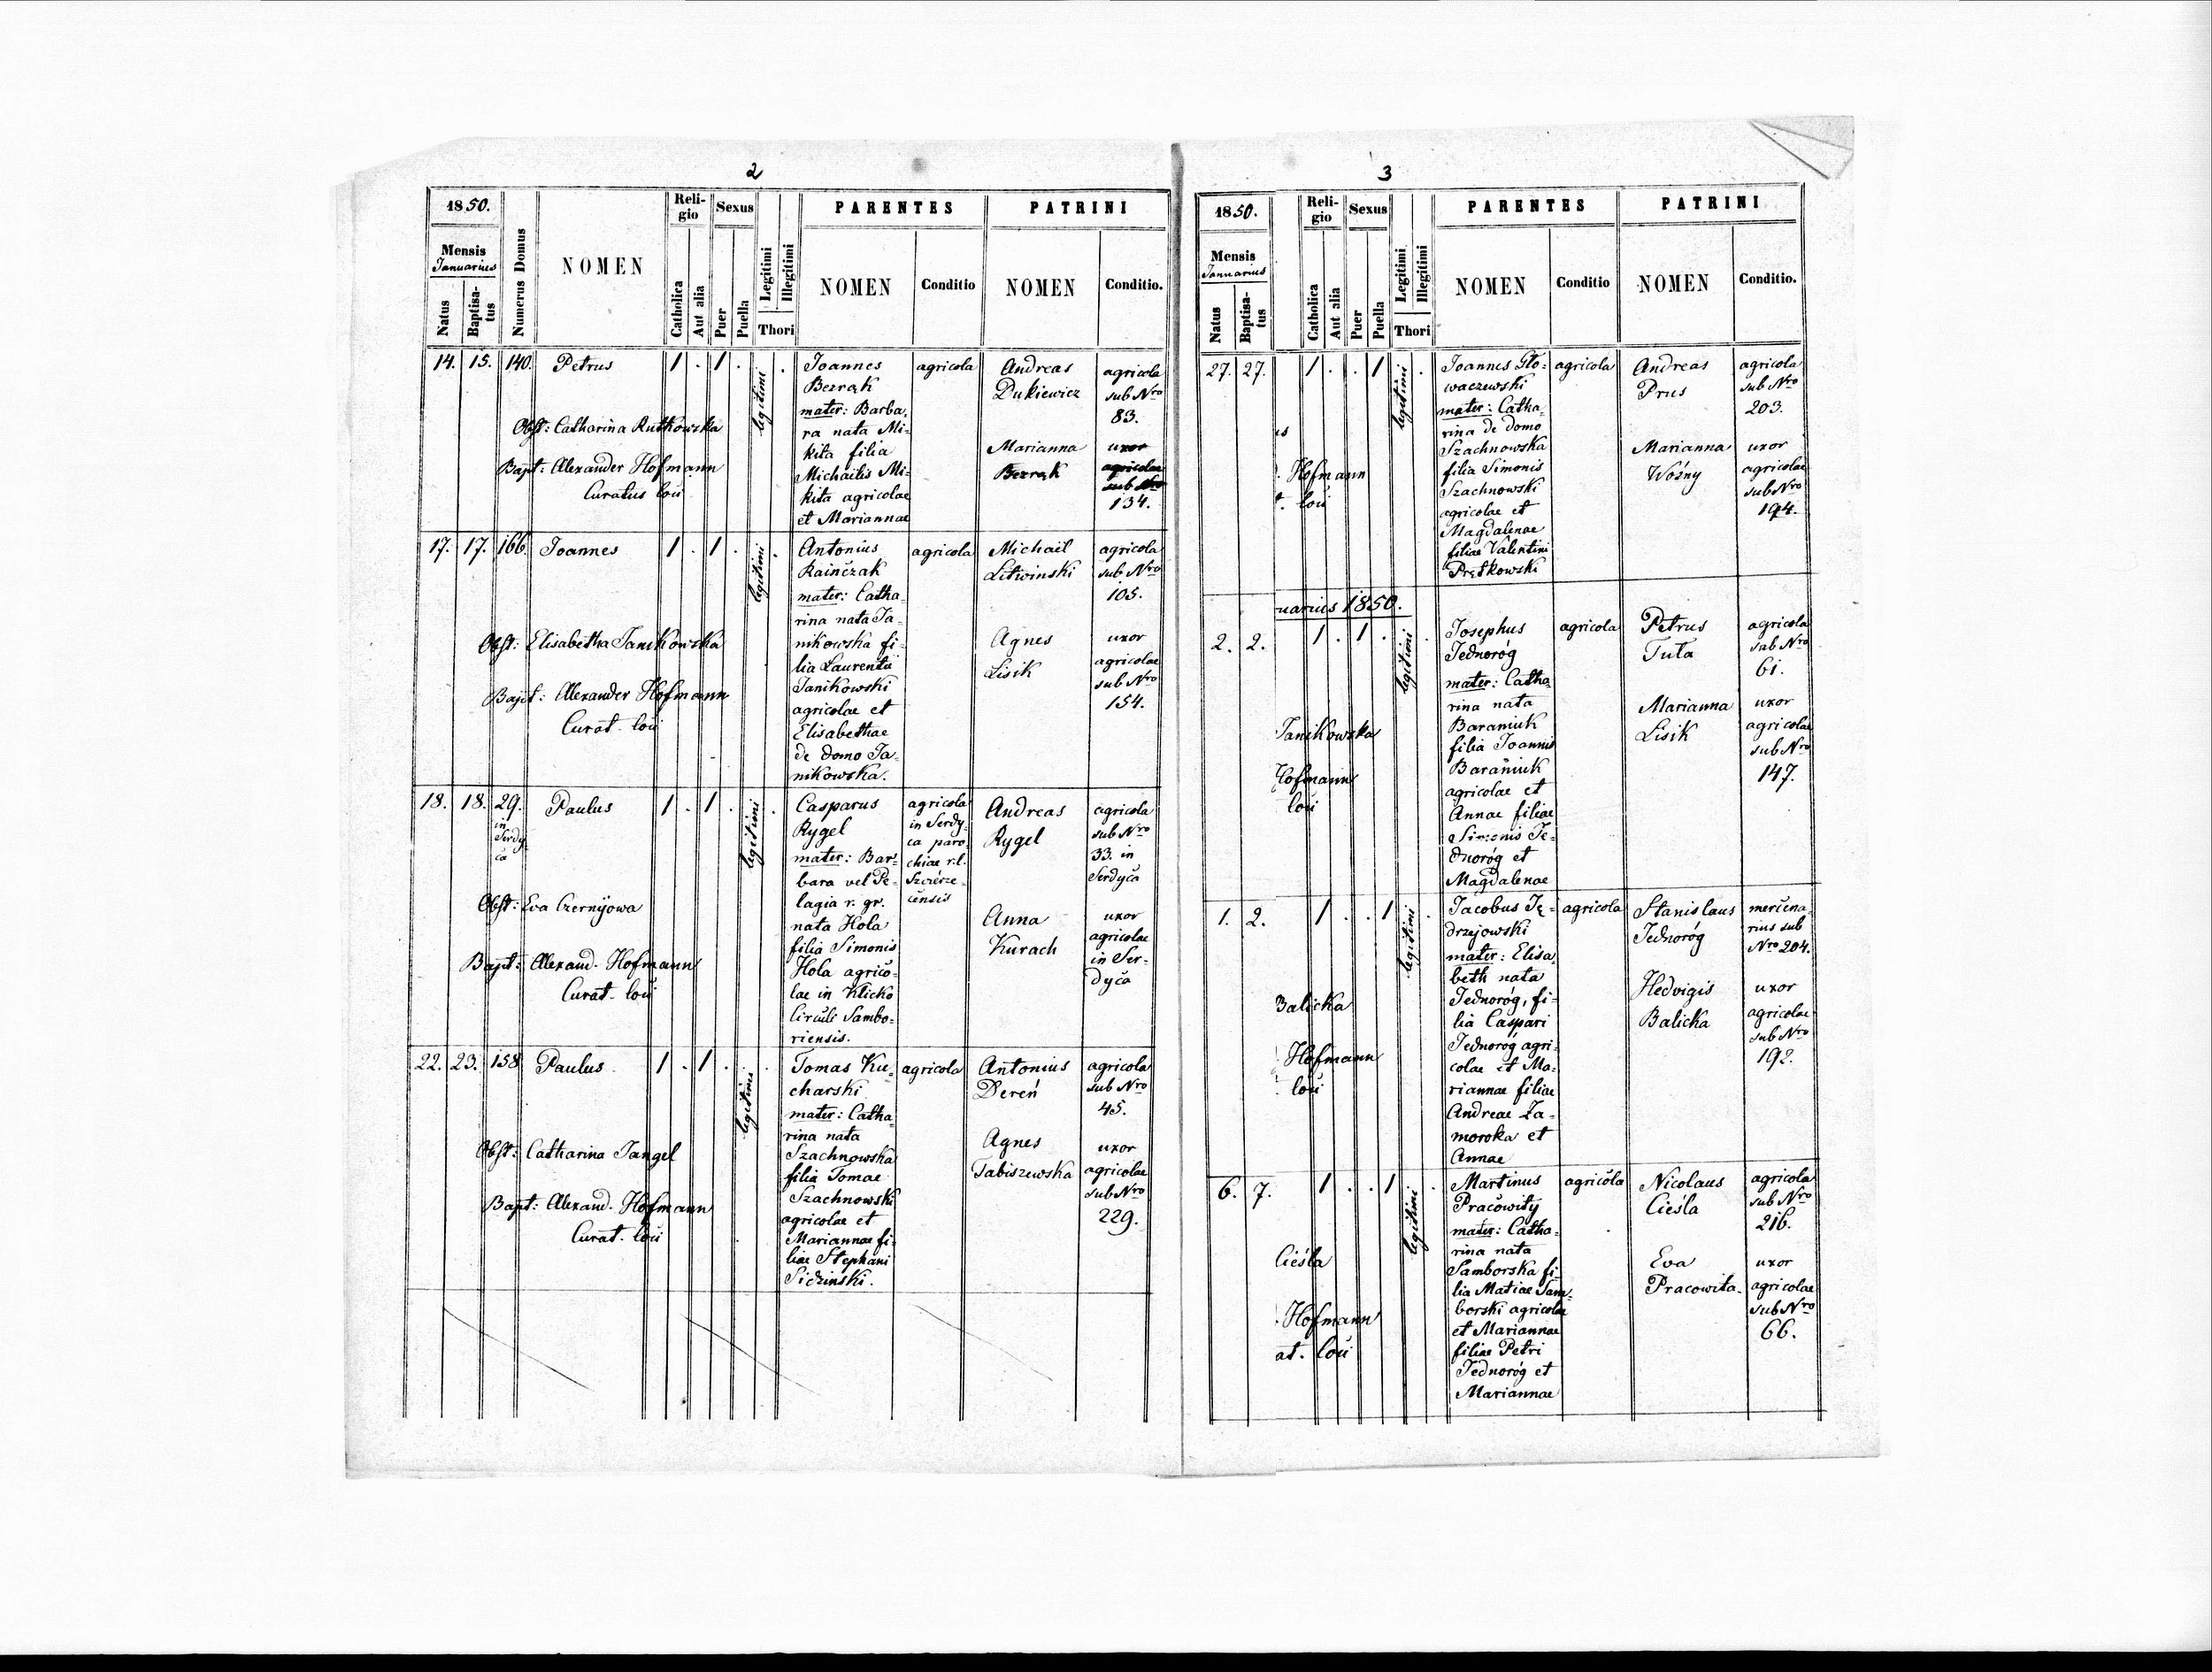 2
1850.
Mensis
Januarius
Natus
Baptisatus
Numerus Domus
NOMEN
Religio
Catholica
Aut alia
Sexus
Puer
Puella
Legitimi
Illegitimi
Thori
PARENTES
NOMEN
Conditio
PATRINI
NOMEN
Conditio.
14. 15. 140. Petrus 1 . 1 . legitimi .
Obst: Catharina Rutkowska
Bapt: Alexander Hofmann
Curatus loci
Joannes
Bezrąk
mater: Barba-
ra nata Mi-
kita filia
Michaelis Mi-
kita agricolae
et Mariannae
agricola
Andreas
Dukiewicz
Marianna
Bezrąk
agricola
sub Nro
83.
uxor
agricolae
sub Nro
134.
17. 17. 166. Joannes 1 . 1 . legitimi .
Obst: Elisabetha Janikowska
Bapt: Alexander Hofmann
Curat. loci
Antonius
Rainczak
mater: Catha-
rina nata Ja-
nikowska fi-
lia Laurentii
Janikowski
agricolae et
Elisabethae
de domo Ja-
nikowska.
agricola
Michael
Litwinski
Agnes
Lisik
agricola
sub Nro
105.
uxor
agricolae
sub Nro
154.
18. 18. 29. Paulus 1 . 1 . legitimi .
in
Serdy-
ca
Obst: Eva Czernijowa
Bapt: Alexand. Hofmann
Curat. loci
Casparus
Rygel
mater: Bar-
bara vel Pe-
lagia r. gr.
nata Hola
filia Simonis
Hola agrico-
lae in Klicko
Circuli Sambo-
riensis.
agricola
in Serdy-
ca paro-
chiae r.l.
Szczerze-
censis
Andreas
Rygel
Anna
Kurach
agricola
sub Nro
33. in
Serdyca
uxor
agricolae
in Ser-
dyca
22. 23. 158 Paulus 1 . 1 . legitimi .
Obst: Catharina Jangel
Bapt: Alexand. Hofmann
Curat. loci
Tomas Ku-
charski
mater: Catha-
rina nata
Szachnowska
filia Tomae
Szachnowski
agricolae et
Mariannae fi-
liae Stephani
Sidzinski.
agricola
Antonius
Dereń
Agnes
Tabiszewska
agricola
sub Nro
45.
uxor
agricolae
sub Nro
229.
3
1850.
Mensis
Januarius
Natus
Baptisatus
Religio
Catholica
Aut alia
Sexus
Puer
Puella
Legitimi
Illegitimi
Thori
PARENTES
NOMEN
Conditio
PATRINI
NOMEN
Conditio.
27. 27. 1 . . 1 legitimi .
is
Hofmann
t. loci
Joannes Gło-
waczewski
mater: Catha-
rina de domo
Szachnowska
filia Simonis
Szachnowski
agricolae et
Magdalenae
filiae Valentini
Prętkowski
agricola
Andreas
Prus
Marianna
Woźny
agricola
sub Nro
203.
uxor
agricolae
sub Nro
194.
uarius 1850.
2. 2. 1 . 1 . legitimi .
Janikowska
Hofmann
loci
Josephus
Jednoróg
mater: Catha-
rina nata
Baraniuk
filia Joannis
Baraniuk
agricolae et
Annae filiae
Simonis Je-
dnoróg et
Magdalenae
agricola
Petrus
Tuta
Marianna
Lisik
agricola
sub Nro
61.
uxor
agricolae
sub Nro
147.
1. 2. 1 . . 1 legitimi .
Balicka
Hofmann
loci
Jacobus Ję-
drzejowski
mater: Elisa-
beth nata
Jednoróg, fi-
lia Caspari
Jednoróg agri-
colae et Ma-
riannae filiae
Andreae Za-
moroka et
Annae
agricola
Stanislaus
Jednoróg
Hedvigis
Balicka
mercena-
rius sub
Nro 204.
uxor
agricolae
sub Nro
192.
6. 7. 1 . . 1 legitimi .
Cieśla
Hofmann
at. loci
Martinus
Pracowity
mater: Catha-
rina nata
Samborska fi-
lia Matiae Sam-
borski agricolae
et Mariannae
filiae Petri
Jednoróg et
Mariannae
agricola
Nicolaus
Cieśla
Eva
Pracowita
agricola
sub Nro
216.
uxor
agricolae
sub Nro
66.